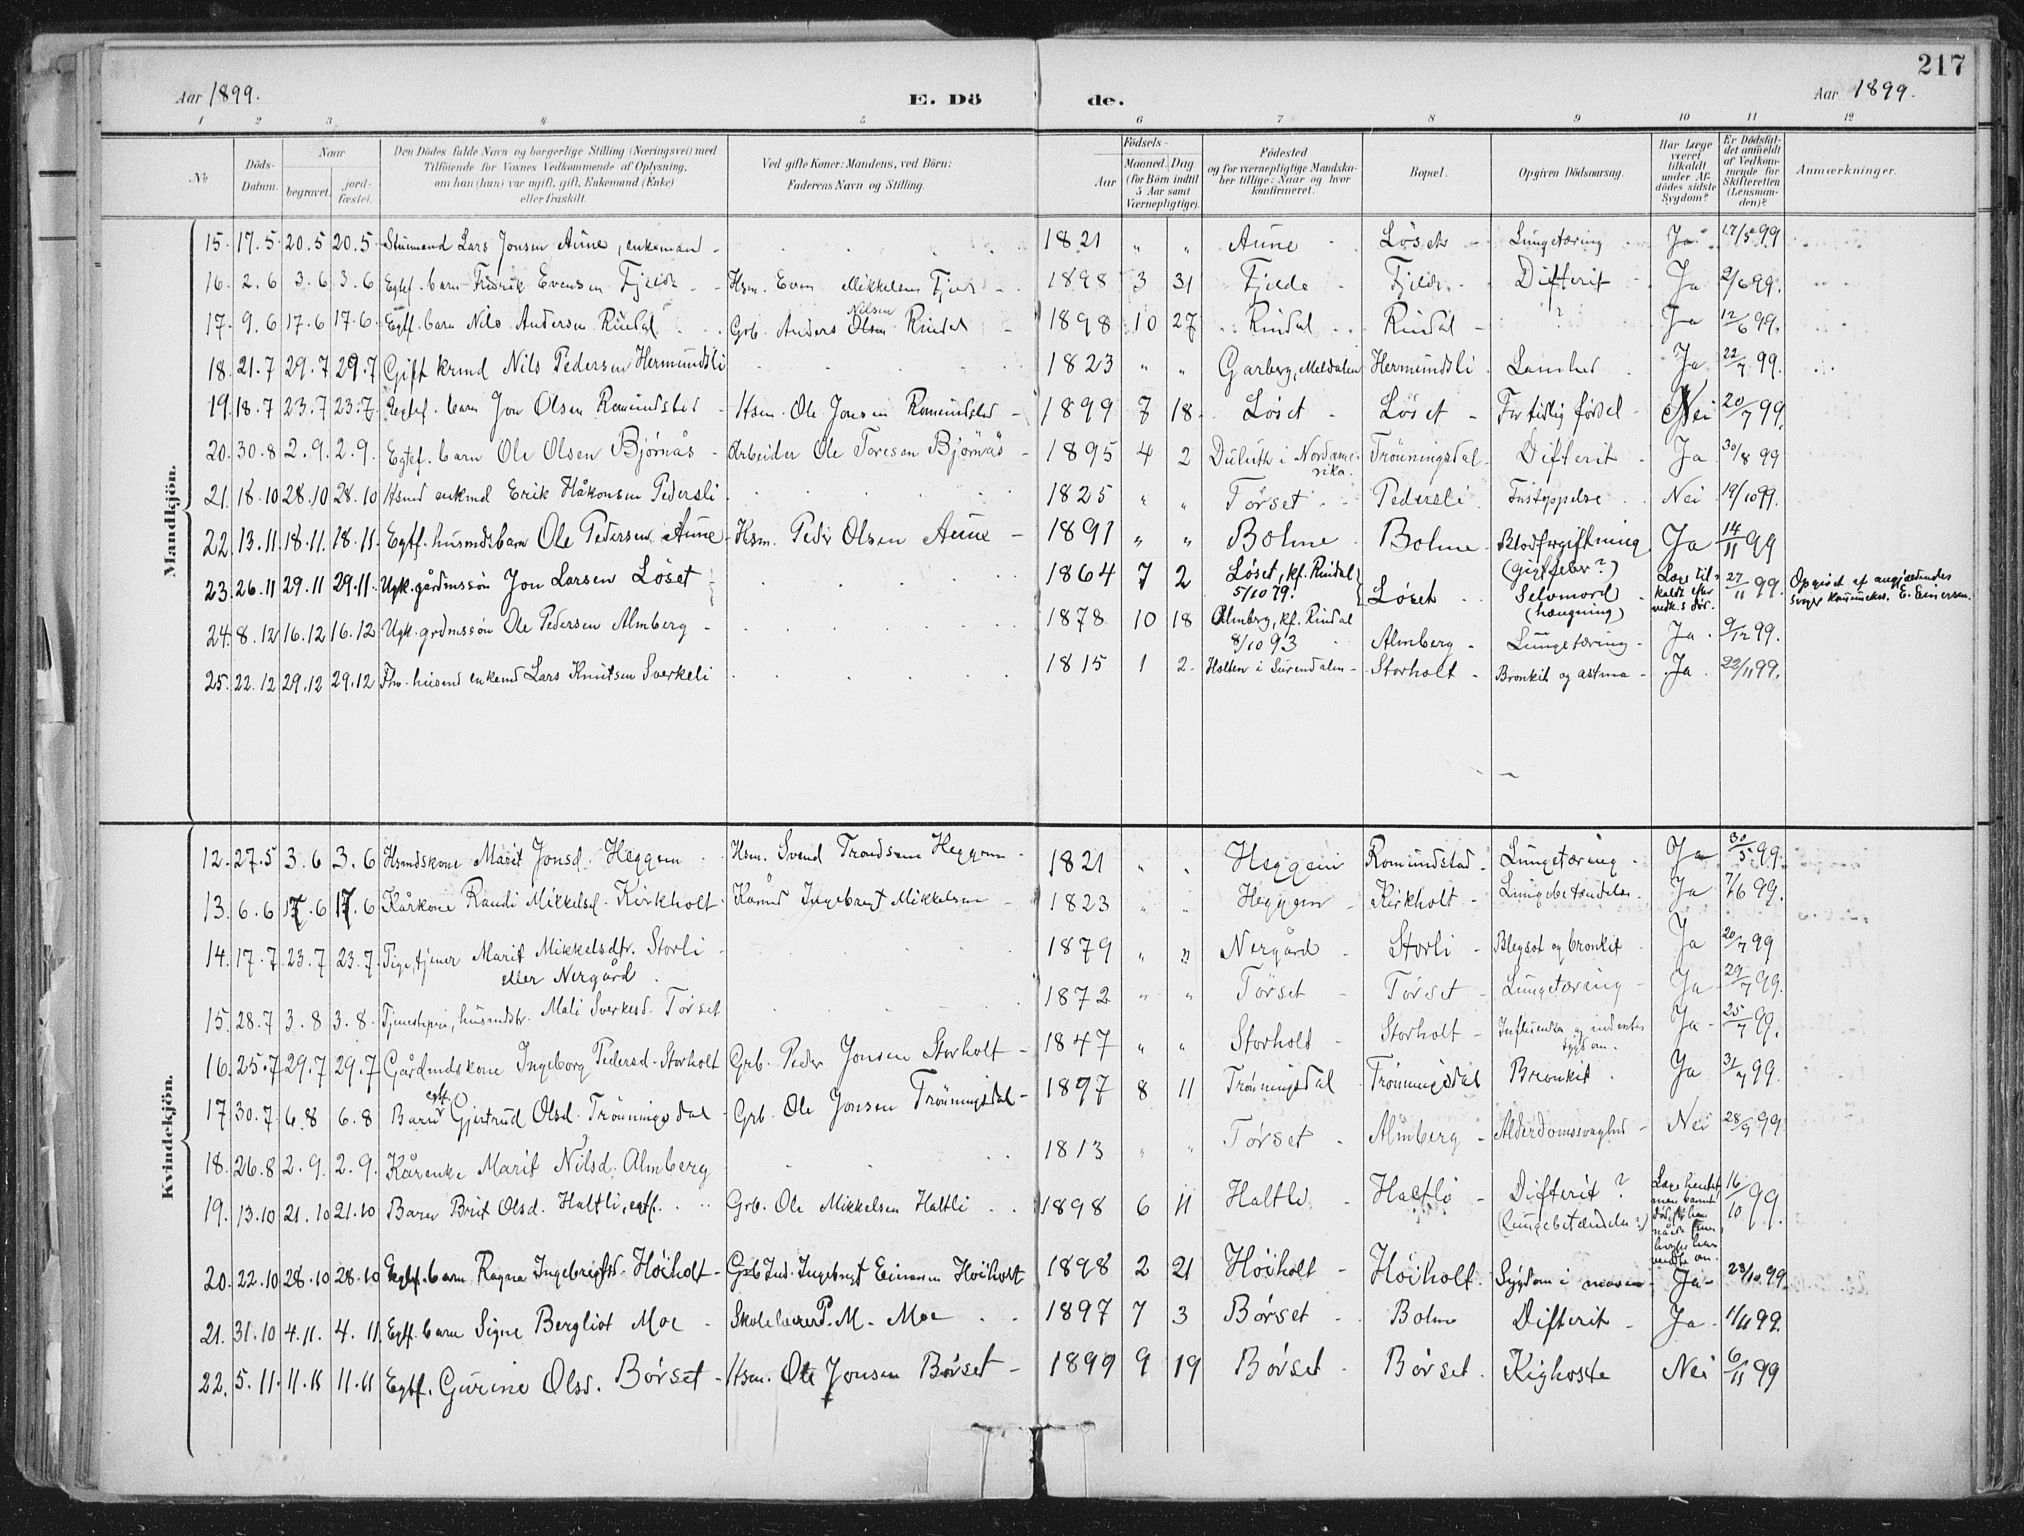 217
Aar 1899. E. Dö de. Aar 1899.
1 2 3 4 5 6 7 8 9 10 11 12
No Döds-Datum. Naar begravet. jordfæstet. Den Dödes fulde Navn og borgerlige Stilling (Næringsvei) med Tilföiende for Voxnes Vedkommende af Oplysning, om han (hun) var ugift, gift, Enkemand (Enke) eller fraskilt. Ved gifte Koner: Mandens, ved Börn: Faderens Navn og Stilling. Födsels- Aar Maaned. Dag (for Börn indtil 5 Aar samt Værnepligtige). Födested og for værnepligtige Mandskaber tillige: Naar og hvor konfirmeret. Bopæl. Opgiven Dödsaarsag. Har Læge været tilkaldt under Afdödes sidste Sygdom? Er Dödsfaldet anmeldt af Vedkommende for Skifteretten (Lensmanden)? Anmærkninger.
Mandkjön.
15. 17.5 20.5 20.5 Lars Jonsen Aune, enkemand 1821 " " Aune Löset Lungetæring Ja 17/5 99
16. 2.6 3.6 3.6 Egtef. barn Fredrik Evensen Fjelde Hsm. Even Mikkelsen 1898 3 31 Fjelde Fjelde Difterit Ja 2/6 99.
17. 9.6 17.6 17.6 Egtf. barn Nils Andersen Rindal Grb. Anders Nilsen Olsen Rindal 1898 10 27 Rindal Rindal ? Ja 12/6 99.
18. 21.7 29.7 29.7 Gift Nils Pedersen Hermundsli 1823 " " Garberg, Meldalen Hermundsli Lamhed Ja 22/7 99.
19. 18.7 23.7 23.7 Egtef. barn Jon Olsen Romundstad Hsm. Ole Jonsen Romundstad 1899 7 18 Löset Löset For tidlig fødsel Nei 20/7 99.
20. 30.8 2.9. 2.9. Egtef. barn Ole Olsen Bjørnås Arbeider Ole Toresen Bjørnås 1895 4 2 Duluth i Nordamerika. Trönningsdal Difterit Ja 30/8 99
21. 18.10 28.10 28.10 Hsmd enkmd Erik Håkonsen Pedersli 1825 " " Tørset Pedersli Nei 19/10 99.
22. 13.11 18.11. 18.11. Egtf. husmdsbarn Ole Pedersen Aune Hsm. Peder Olsen Aune 1891 " " Bolme Bolme Blodforgiftning (gigtfebr?) Ja 14/11 99
23. 26.11 29.11 29.11. Ugk. gårdmssøn Jon Larsen Löset 1864 7 2 Löset, kf. Rindal 5/10 79. Löset Selvmord (hængning) Læge tilkaldt efter vedk.s død. 27/11 99. E. Einersen.
24. 8.12 16.12 16.12 Ugk. grdmssøn Ole Pedersen Almberg 1878 10 18 Almberg, kf. Rindal 8/10 93 Almberg Lungetæring Ja 9/12 99.
25. 22.12 29.12 29.12 husmd enkemd Lars Knutsen Sverkeli 1815 1 2 Holten i Surendalen Storholt Bronkit og astma Ja 22/11 99.
Kvindekjön.
12. 27.5 3.6 3.6 Hsmdskone Marit Jonsd. Heggem Hsm. Svend Trondsen Heggem 1821 " " Heggem Romundstad Lungetæring Ja 30/5 99.
13. 6.6 17.6 17.6 Kårkone Randi Mikkelsd. Kirkholt Kårmd Ingebregt Mikkelsen 1823 " " Heggem Kirkholt Lungebetændelse Ja 7/6 99.
14. 17.7 23.7 23.7 Pige, tjener Marit Mikkelsdtr. Storli eller Nergård 1879 " " Nergård Storli Blegsot og bronkit Ja 20/7 99
15. 28.7 3.8 3.8 Tjenestepie, husmdsdtr. Mali Sverkesd. Tørset 1872 " " Tørset Tørset Lungetæring Ja 29/7 99.
16. 25.7 29.7 29.7 Gårdmdskone Ingeborg Pedersd. Storholt Grb. Peder Jonsen Storholt 1847 " " Storholt Storholt Influensa og indvortes sygdom. Ja 25/7 99.
17 30.7 6.8 6.8 Barn egtf. Gjertrud Olsd. Trönningsdal Grb. Ole Jonsen Trönningsdal 1897 8 11 Trönningsdal Trönningsdal Bronkit Ja 31/7 99.
18. 26.8 2.9. 2.9. Kårenke Marit Nilsd. Almberg 1813 " " Tørset Almberg Alderdomssvaghed Nei 28/9 99
19. 13.10 21.10 21.10 Barn Brit Olsd. Haltli, egtf. Grb. Ole Mikkelsen Haltli 1898 6 11 Haltli Haltli Difterit? (lungebetændelse?) Læge hentet men barnet død 16/10 99.
20. 22.10 28.10 28.10 Egtf. barn Ragna Ingebrigtsd. Høiholt Grb Ind. Ingebregt Einersen Høiholt 1898 2 21 Høiholt Høiholt Sygdom i maven Ja 23/10 99
21. 31.10 4.11. 4.11 Egtf. barn Signe Bergliot Moe Skolelærer P. M. Moe 1897 7 3 Børset Bolme Difterit Ja 1/11 99.
22. 5.11. 11.11 11.11 Egtf. Gurine Olsd. Børset Hsm. Ole Jonsen Børset 1899 9 19 Børset Børset Kighoste Nei 6/11 99